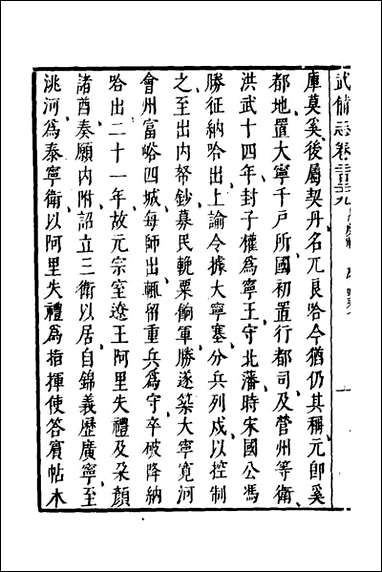 武備志卷
庫莫奚後屬契丹名兀良哈今猶仍其稱元卽奚
都地置大寧千戶所國初置行都司及營州等衛
洪武十四年封子權爲寧王守北藩時宋國公馮
勝征納哈出上諭令據大寧塞分兵列戍以控制
之至出内帑鈔募民輓粟餉軍勝遂築大寧寬河
會州富峪四城每師出輒留重兵爲守卒破降納
哈出二十一年故元宗室遼王阿里失禮及朵顏
諸酋奏願内附詔立三衛以居自錦義歷廣寧至
洮河爲泰寧衛以阿里失禮爲指揮使荅賓帖木